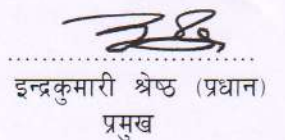 इन्द्रकुमारी श्रेष्ठ (प्रधान)
प्रमुख